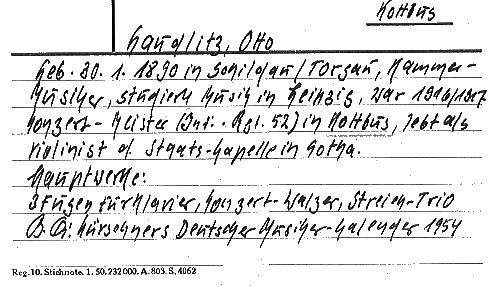 Kottbus
Kandlitz, Otto
Geb. 30. 1. 1890 in Schildau/Torgau, Kammer-
Musiker, studierte Musik in Leipzig, war 1916/1917
Konzert-Meister (Inf.-Rgt. 52) in Kottbus, lebt als
Violinist d. Staats-Kapelle in Gotha.
Hauptwerke:
3 Fugen für Klavier, Konzert-Walzer, Streich-Trio
B.Qu: Kürschners Deutscher Musiker-Kalender 1954
Reg. 10. Stichnote. 1. 50. 232 000. A. 803. S. 4062